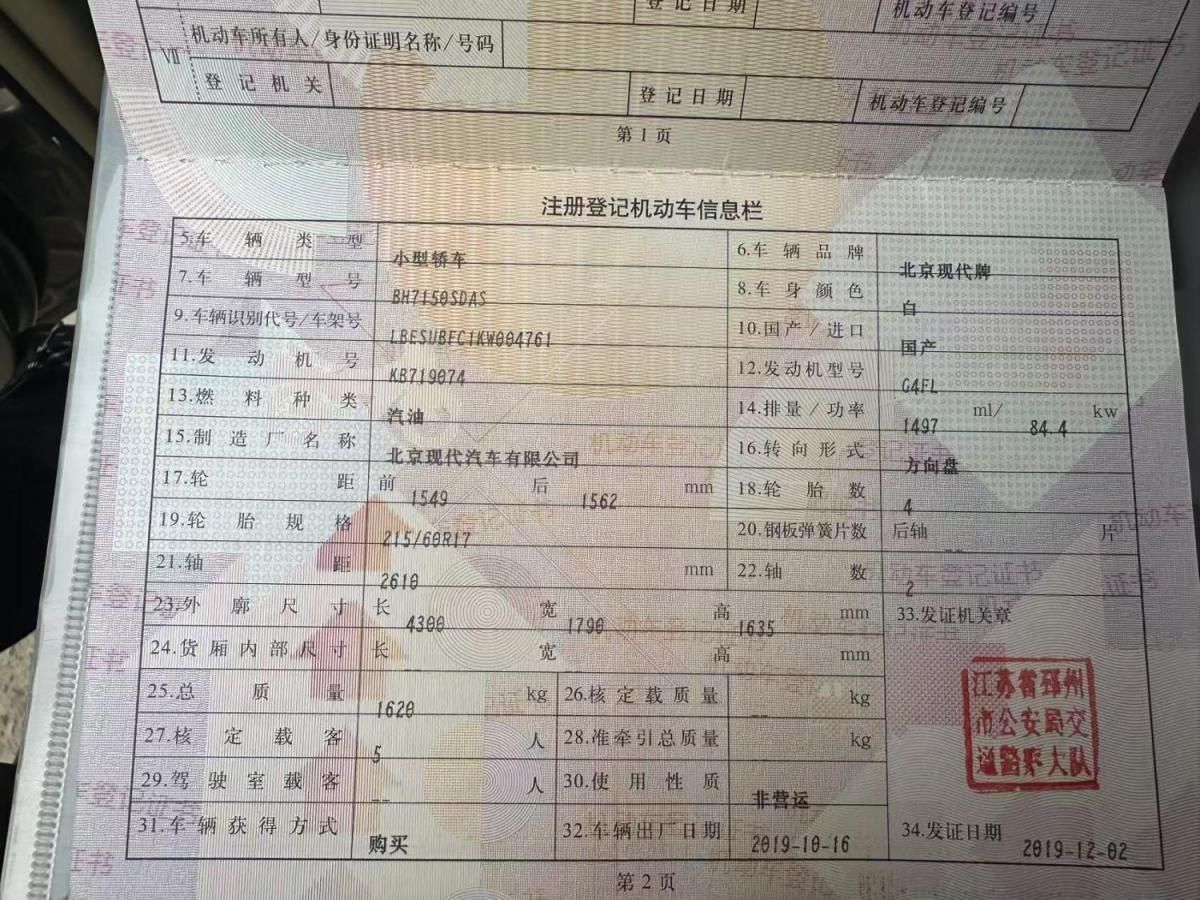 登记日期 机动车登记编号
Ⅶ 机动车所有人/身份证明名称/号码
登记机关 登记日期 机动车登记编号
第1页
注册登记机动车信息栏
5.车辆类型 小型轿车 6.车辆品牌 北京现代牌
7.车辆型号 BH7150SDAS 8.车身颜色 白
9.车辆识别代号/车架号 LBESUBFC1KW004761 10.国产/进口 国产
11.发动机号 KB719074 12.发动机型号 G4FL
13.燃料种类 汽油 14.排量/功率 1497 ml/ 84.4 kw
15.制造厂名称 北京现代汽车有限公司 16.转向形式 方向盘
17.轮距 前 1549 后 1562 mm 18.轮胎数 4
19.轮胎规格 215/60R17 20.钢板弹簧片数 后轴 -- 片
21.轴距 2610 mm 22.轴数 2
23.外廓尺寸 长 4300 宽 1790 高 1635 mm 33.发证机关章
24.货厢内部尺寸 长 -- 宽 高 mm
25.总质量 1620 kg 26.核定载质量 -- kg
27.核定载客 5 人 28.准牵引总质量 -- kg
29.驾驶室载客 -- 人 30.使用性质 非营运
31.车辆获得方式 购买 32.车辆出厂日期 2019-10-16 34.发证日期 2019-12-02
江苏省邳州
市公安局交
通警察大队
第2页